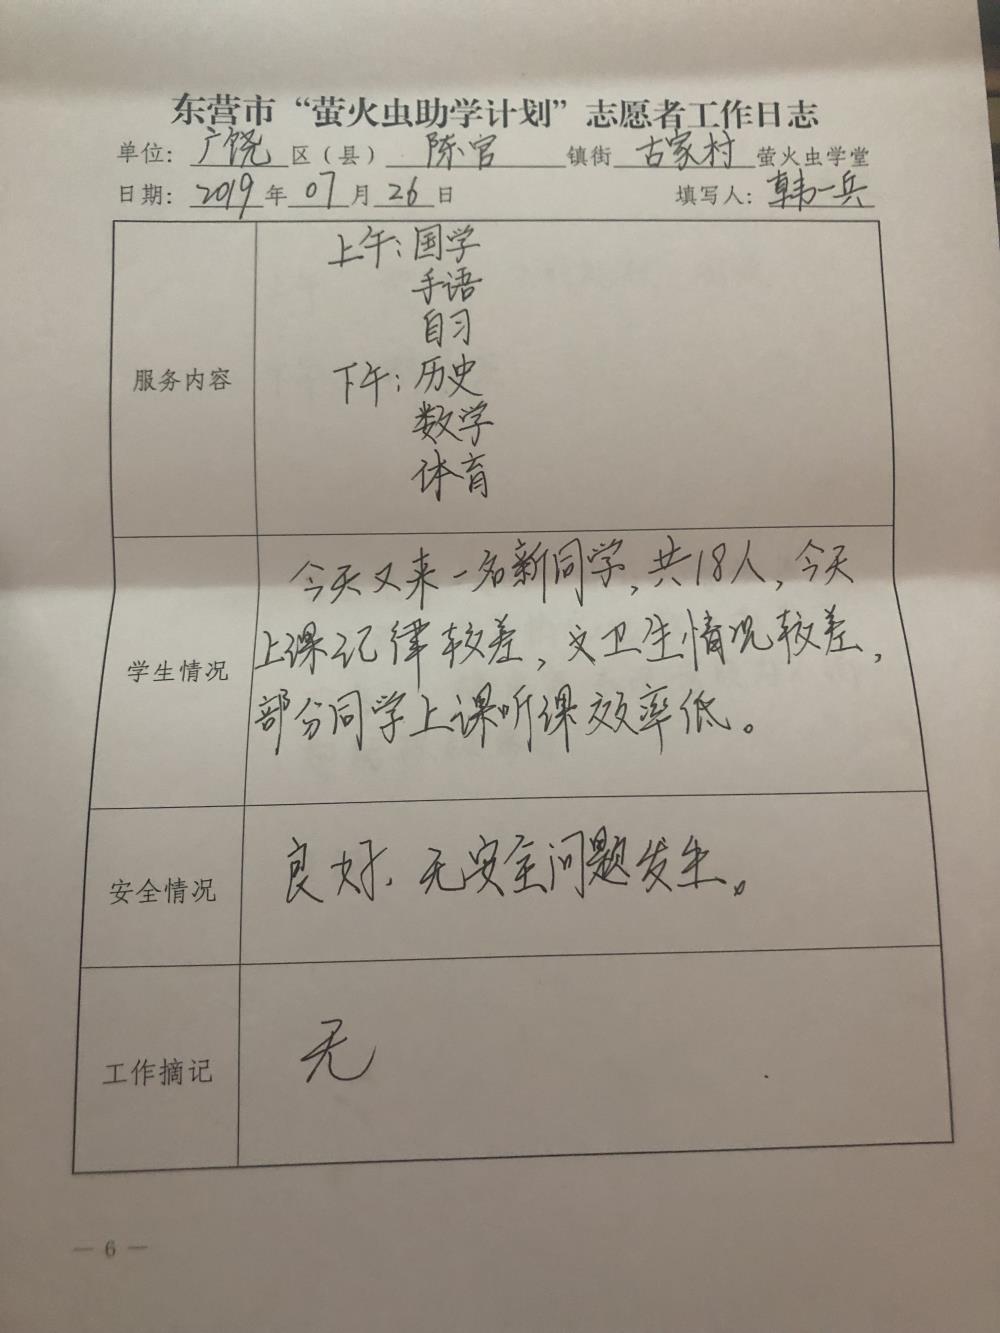 东营市“萤火虫助学计划”志愿者工作日志
单位：广饶区（县）陈官镇街古家村萤火虫学堂
日期：2019年07月26日 填写人：韩一兵
服务内容
上午：国学
手语
自习
下午：历史
数学
体育
学生情况
今天又来一名新同学，共18人，今天
上课记律较差，文卫生情况较差，
部分同学上课听课效率低。
安全情况
良好、无安全问题发生。
工作摘记
无
— 6 —